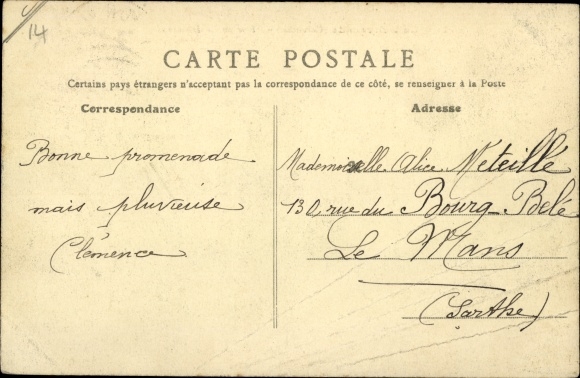 14
CARTE POSTALE
Certains pays étrangers n'acceptant pas la correspondance de ce côté, se renseigner à la Poste
Correspondance
Bonne promenade
mais pluvieuse
Clémence
Adresse
Mademoiselle Alice Méteillé
130 rue du Bourg Belé
Le Mans
(Sarthe)